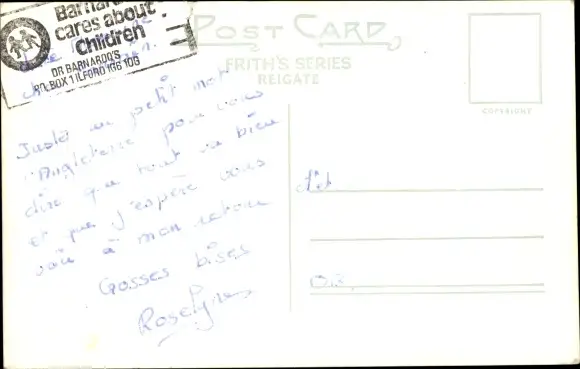 Barnardo
cares about
Children
DR BARNARDO'S
P.O. BOX 1 ILFORD IG6 1QG
POST CARD
FRITH'S SERIES
REIGATE
COPYRIGHT
Juste un petit mot
d'Angleterre pour vous
dire que tout va bien
et que j'espère vous
voir à mon retour
Grosses bises